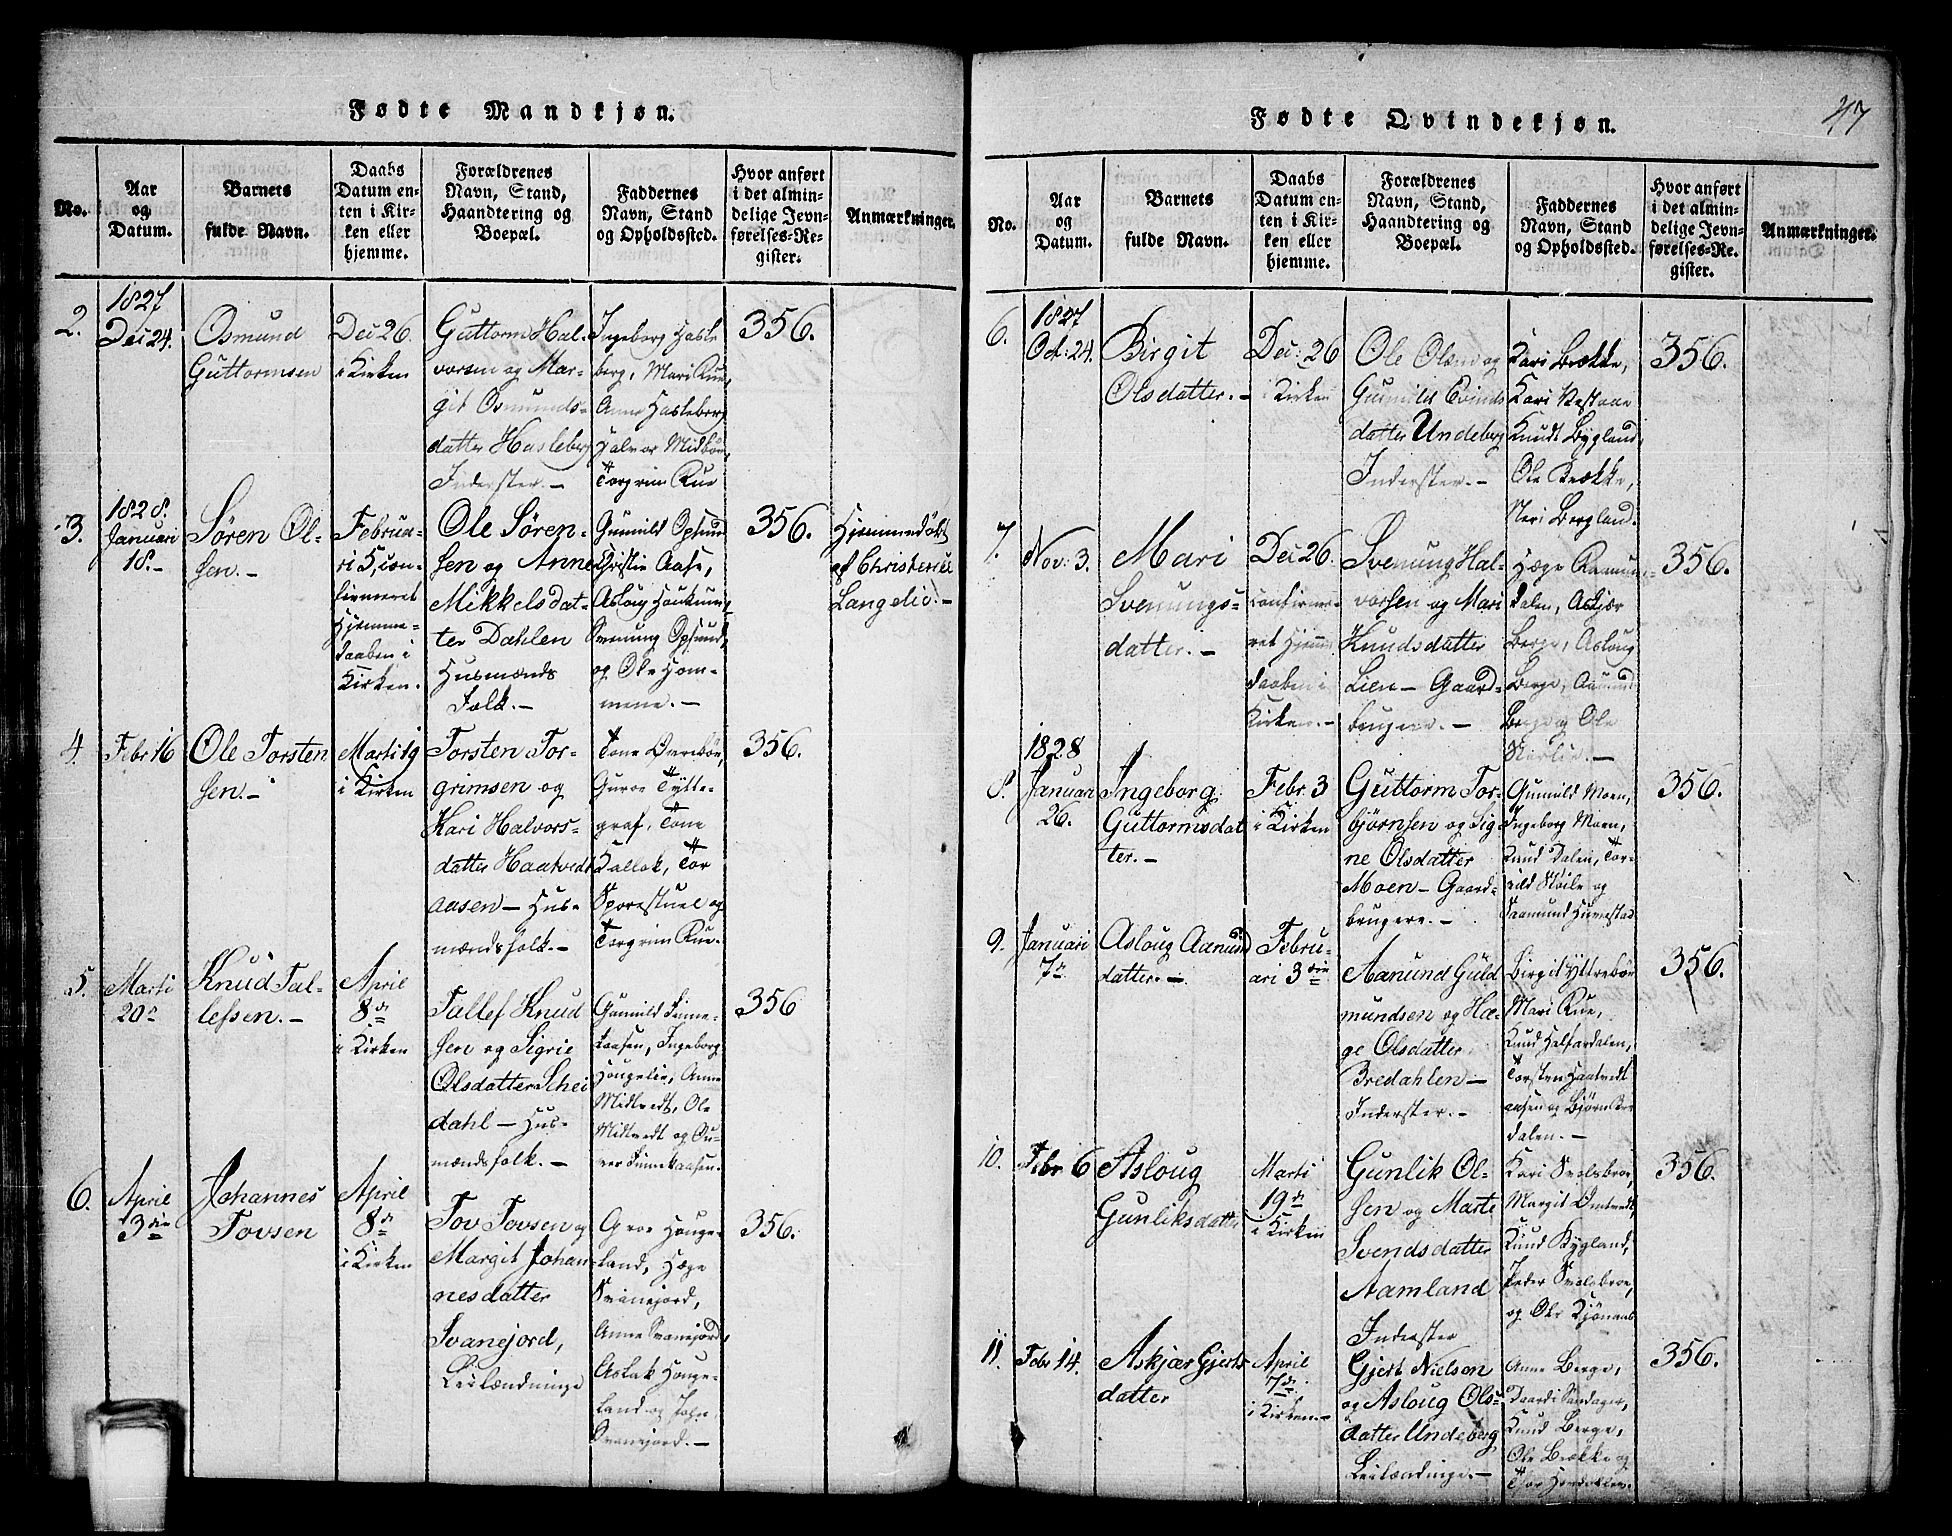 Fødte Mandkjøn.
No.
Aar
og
Datum.
Barnets
fulde Navn.
Daabs
Datum en-
ten i Kir-
ken eller
hjemme.
Forældrenes
Navn, Stand,
Haandtering og
Boepæl.
Faddernes
Navn, Stand
og Opholdssted.
Hvor anført
i det almin-
delige Jevn-
førelses-Re-
gister.
Anmærkninger.
2.
1827
Dec 24.
Osmund
Guttormsen
Dec 26
i Kirken
Guttorm Hal-
vorsen og Mar-
git Osmunds-
datter Hasleberg
Inderster.-
Ingeborg Hasle
berg, Mari Rue,
Anne Hasleberg
Halvor Midbøe,
Torgrim Rue
356.
3.
1828.
Januari
18.-
Søren Ol-
sen.-
Februa-
ri 5, con-
firmeret
Hjemme-
daaben i
Kirken.
Ole Søren-
sen og Anne
Mikkelsdat-
ter Dahlen
Husmænds
Folk.-
Gunild Opsund
Christie Aase,
Asloug
Svenung Opsund,
og Ole Hom-
mene.-
356.
Hjemmedøbt
af Christense
Langelie.-
4.
Febr 16
Ole Torsten
sen.-
Marti 19
i Kirken
Torsten Tor-
grimsen og
Kari Halvors-
datter Haatvedt
aasen - Hus-
mændsfolk.-
Tone Øvrebøe,
Guroe Tytte-
graf, Tone
Dallok, Tor
Sporestuel og
Torgrim Rue.
356.
5.
Marti
20de
Knud Tal-
lefsen.-
April
8de
i Kirken
Tallef Knud
sen og Sigrie
Olsdatter Schei
dahl - Hus-
mændsfolk.-
Gunild Finne-
kaasen, Ingeborg
Hougelie, Anne
Midtvedt, Ole
Midtvedt og Gu-
ner Finnekaasen.
356
6.
April
3die
Johannes
Tovsen
April
8de
i Kirken
Tov Tovsen og
Margit Johan-
nesdatter
Svanejord,
Leilændinge
Groe Houge-
land, Hæge
Svanejord,
Anne Svanejord,
Aslak Houge-
land og John
Svanejord.-
356.
47
Fødte Qvindekjøn.
No.
Aar
og
Datum.
Barnets
fulde Navn.
Daabs
Datum en-
ten i Kir-
ken eller
hjemme.
Forældrenes
Navn, Stand,
Haandtering og
Boepæl.
Faddernes
Navn, Stand
og Opholdssted.
Hvor anført
i det almin-
delige Jevn-
førelses-Re-
gister.
Anmærkninger.
6.
1827
Oct: 24.
Birgit
Olsdatter.-
Dec: 26
i Kirken
Ole Olsen og
Gunild Evinds
datter Undeberg
Inderster.-
Kari Bække,
Kari Nestaae
Knudt Bygland,
Ole Bække,
Neri Bergland.
356.
7.
Nov. 3.
Mari
Svenungs-
datter.-
Dec 26
confirme-
ret Hjemme
daaben i
Kirken.-
Svenung Hal-
vorsen og Mari
Knudsdatter
Lien - Gaard-
brugere.-
Hæge Raamun-
dalen, Askjær
Berge, Asloug
Berge, Aamund
Berge og Ole
Norlie.-
356.
8.
1828
Januari
26.
Ingeborg
Guttormsdat
ter.-
Febr. 3
i Kirken
Guttorm Tor-
bjørnsen og Sig-
ne Olsdatter
Moen - Gaard-
brugere.-
Gunuld Moen,
Ingeborg Moen,
Knud Dalen, Tor-
og
Saamund
356.
9.
Januari
7de
Asloug Aanund
datter.-
Febru-
ari 3die
Aanund Guld
mundsen og Hæ-
ge Olsdatter
Bredahlen -
Inderster.-
Birgit Yttrebøe
Mari Rue,
Knud Halfardalen,
Torsten Haatvedt
aasen og Bjørn Bre
dalen.-
356.
10.
Febr 6
Asloug
Gunliksdatter
Marti
19de
i Kirken
Gunlik Ol-
sen og Marte
Svendsdatter
Aamland
Inderster
Kari Svalsbroe,
Margit Omtvedt,
Knud Bygland,
Peder Svalsbroe,
og Ole
356.
11.
Febr 14.
Askjær Gjerts
datter
April
7de
i Kirken.-
Gjert Nielsen
og Asloug Ols-
datter Undeberg
Leilændinge.-
Anne Berge,
Sandager,
Knud Berge,
Ole Bække og
356.